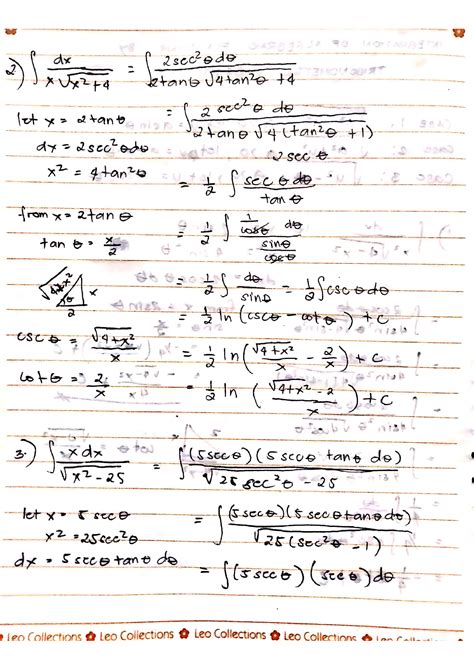 2.) ∫ dx / (x √(x²+4)) = ∫ 2sec²θ dθ / (2tanθ √(4tan²θ +4))
let x = 2tanθ = ∫ 2 sec²θ dθ / (2tanθ √(4(tan²θ +1)))
dx = 2sec²θdθ 2secθ
x² = 4tan²θ = 1/2 ∫ secθ dθ / tanθ
from x = 2tanθ = 1/2 ∫ (1/cosθ) dθ / (sinθ/cosθ)
tanθ = x/2
√4+x² x θ 2 = 1/2 ∫ dθ/sinθ = 1/2 ∫ cscθdθ
= 1/2 ln (cscθ - cotθ) + c
cscθ = √(4+x²)/x = 1/2 ln(√(4+x²)/x - 2/x) + c
cotθ = 2/x = 1/2 ln ((√(4+x²) - 2)/x) + c
3.) ∫ x dx / √(x² - 25) = ∫ (5secθ)(5secθ tanθ dθ) / √(25 sec²θ - 25)
let x = 5secθ = ∫ (5secθ)(5secθtanθdθ) / √(25(sec²θ - 1))
x² = 25sec²θ
dx = 5secθtanθ dθ = ∫(5secθ)(secθ)dθ
Leo Collections Leo Collections Leo Collections Leo Collections Leo Collections